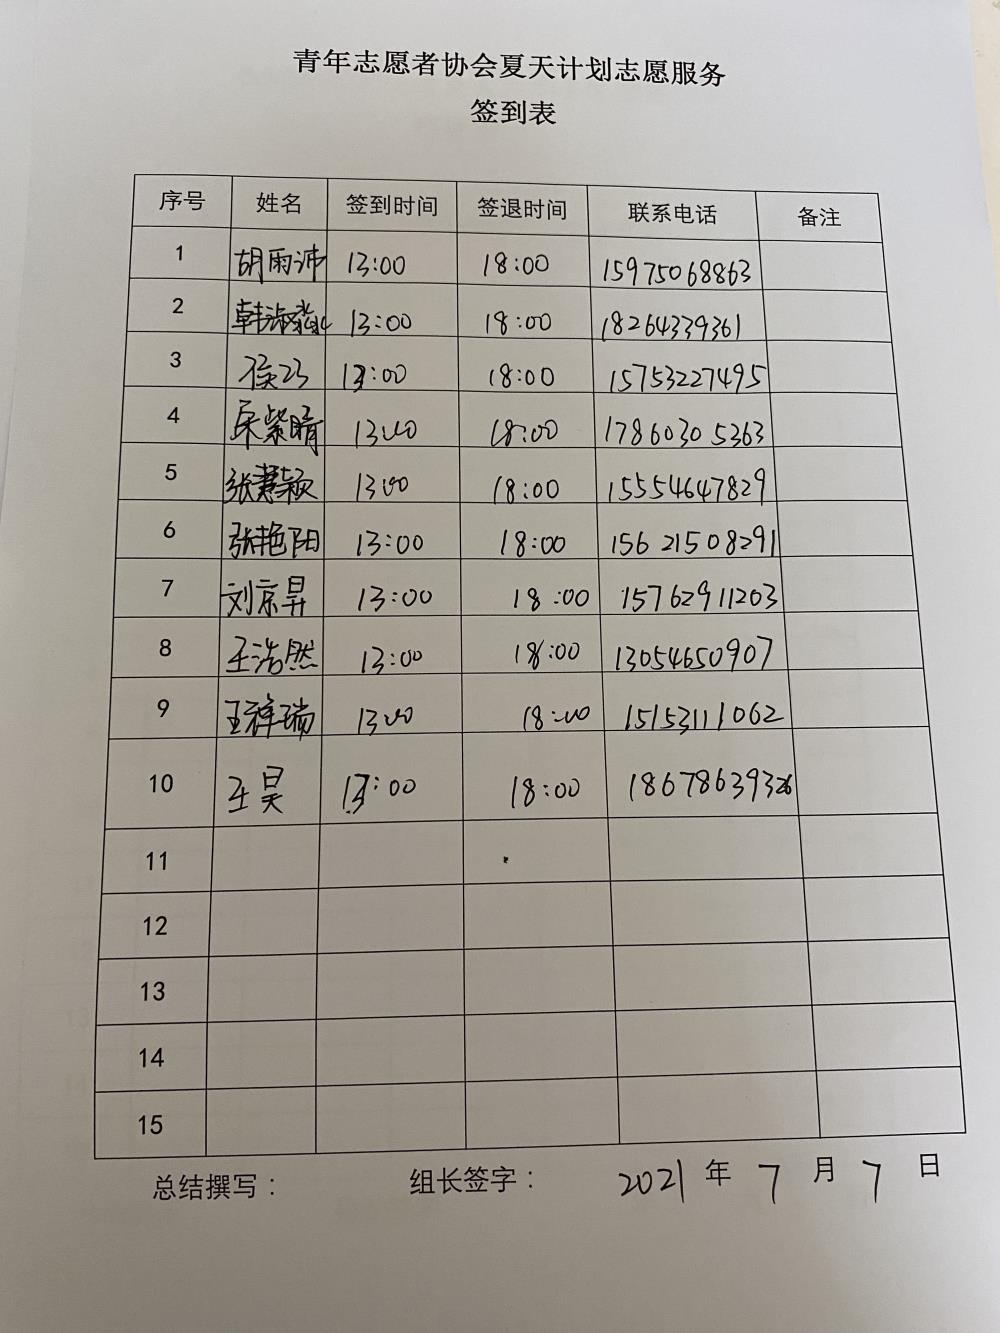 青年志愿者协会夏天计划志愿服务
签到表
序号 姓名 签到时间 签退时间 联系电话 备注
1 胡雨沛 13:00 18:00 15975068863
2 韩淑 13:00 18:00 18264339361
3 侯巧 13:00 18:00 15753227495
4 紫晴 13:00 18:00 17860305363
5 张慧颖 13:00 18:00 15554647829
6 张艳阳 13:00 18:00 15621508291
7 刘京昇 13:00 18:00 15762911203
8 王浩然 13:00 18:00 13054650907
9 王祥瑞 13:00 18:00 15153111062
10 王昊 13:00 18:00 18678639326
11
12
13
14
15
总结撰写： 组长签字： 2021 年 7 月 7 日